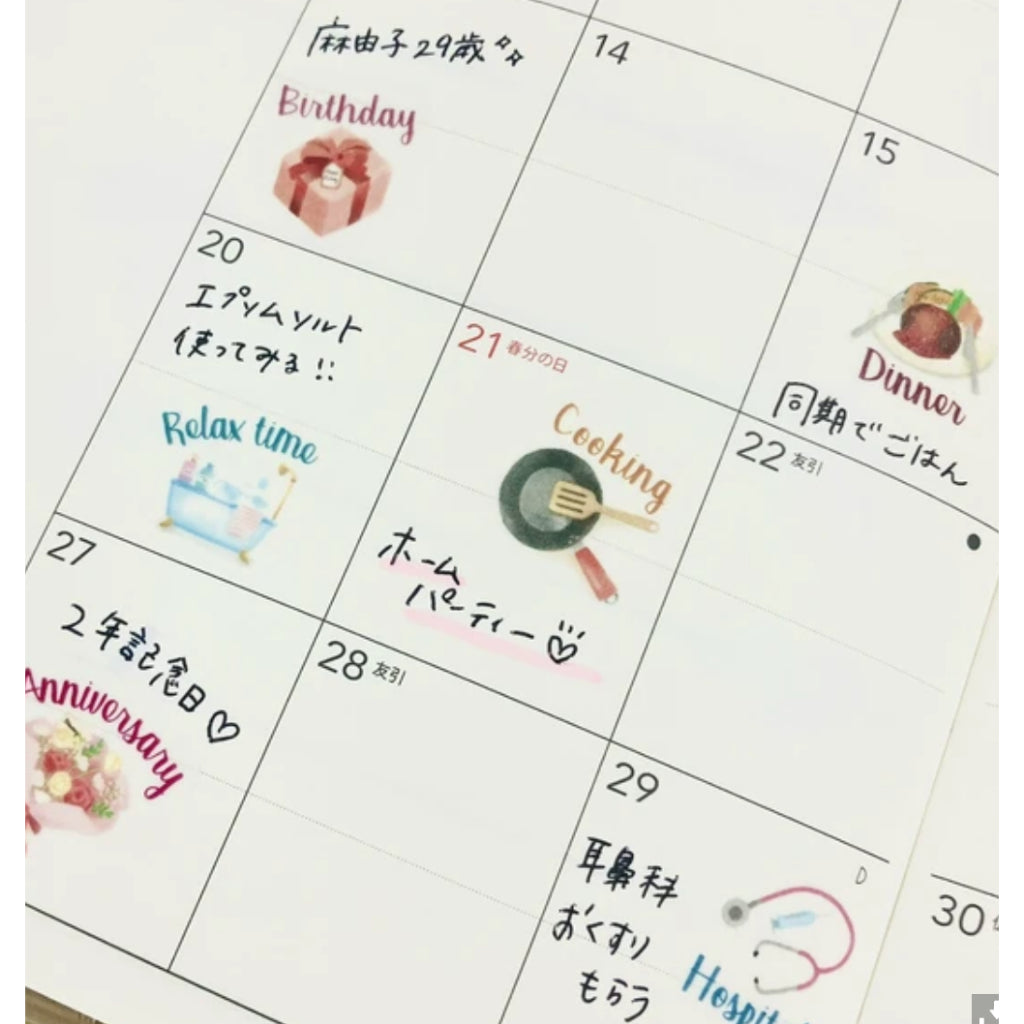 麻由子29歳
Birthday
14
15
Dinner
同期でごはん
20
エプソムソルト
使ってみる!!
Relax time
21 春分の日
Cooking
ホーム
パーティー♡
22 友引
27
2年記念日♡
Anniversary
28 友引
29
耳鼻科
おくすり
もらう
Hospit
30